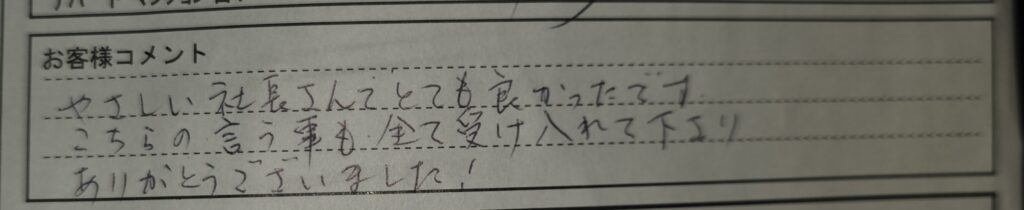 お客様コメント
やさしい社長さんでとても良かったです
こちらの言う事も全て受け入れて下さり
ありがとうございました!